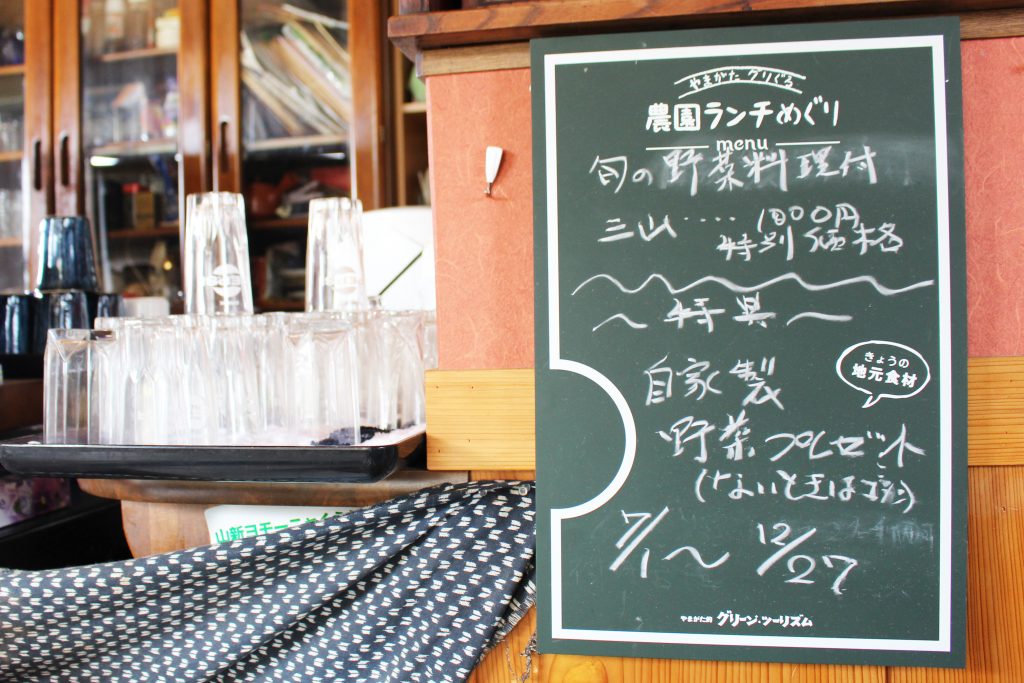 やまがたグリぐる
農園ランチめぐり
menu
旬の野菜料理付
三山‥‥1000円
特別価格
~特典~
自家製
きょうの
地元食材
野菜プレゼント
(ないときはゴメン)
7/1~12/27
やまがた的 グリーン・ツーリズム